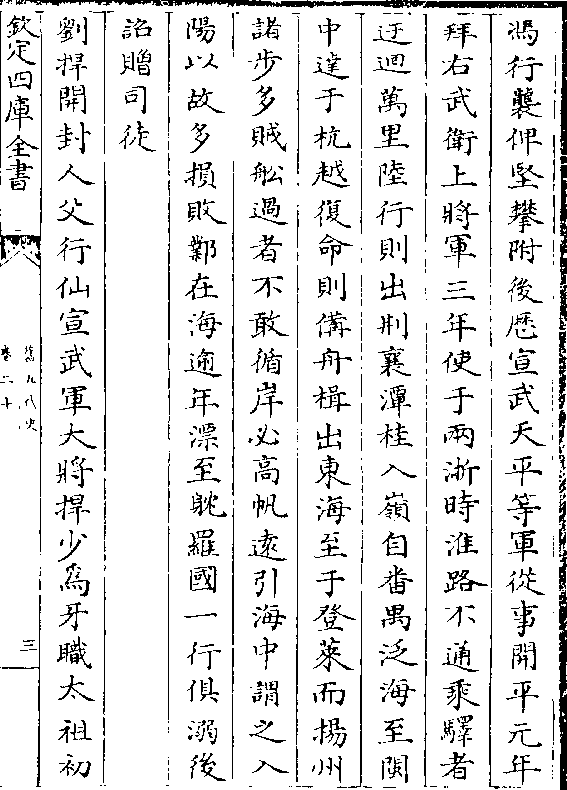 馮行襲俾堅攀附後歷宣武天平等軍從事開平元年
拜右武衛上將軍三年使于兩浙時淮路不通乘驛者
迂迴萬里陸行則出荆襄潭桂入嶺自番禺泛海至閩
中達于杭越復命則備舟楫出東海至于登萊而揚州
諸步多賊舩過者不敢循岸必高帆逺引海中謂之入
陽以故多損敗鄴在海逾年漂至躭羅國一行俱溺後
詔贈司徒
劉捍開封人父行仙宣武軍大將捍少爲牙職太祖初
欽定四庫全書
舊五代史
卷二十
三